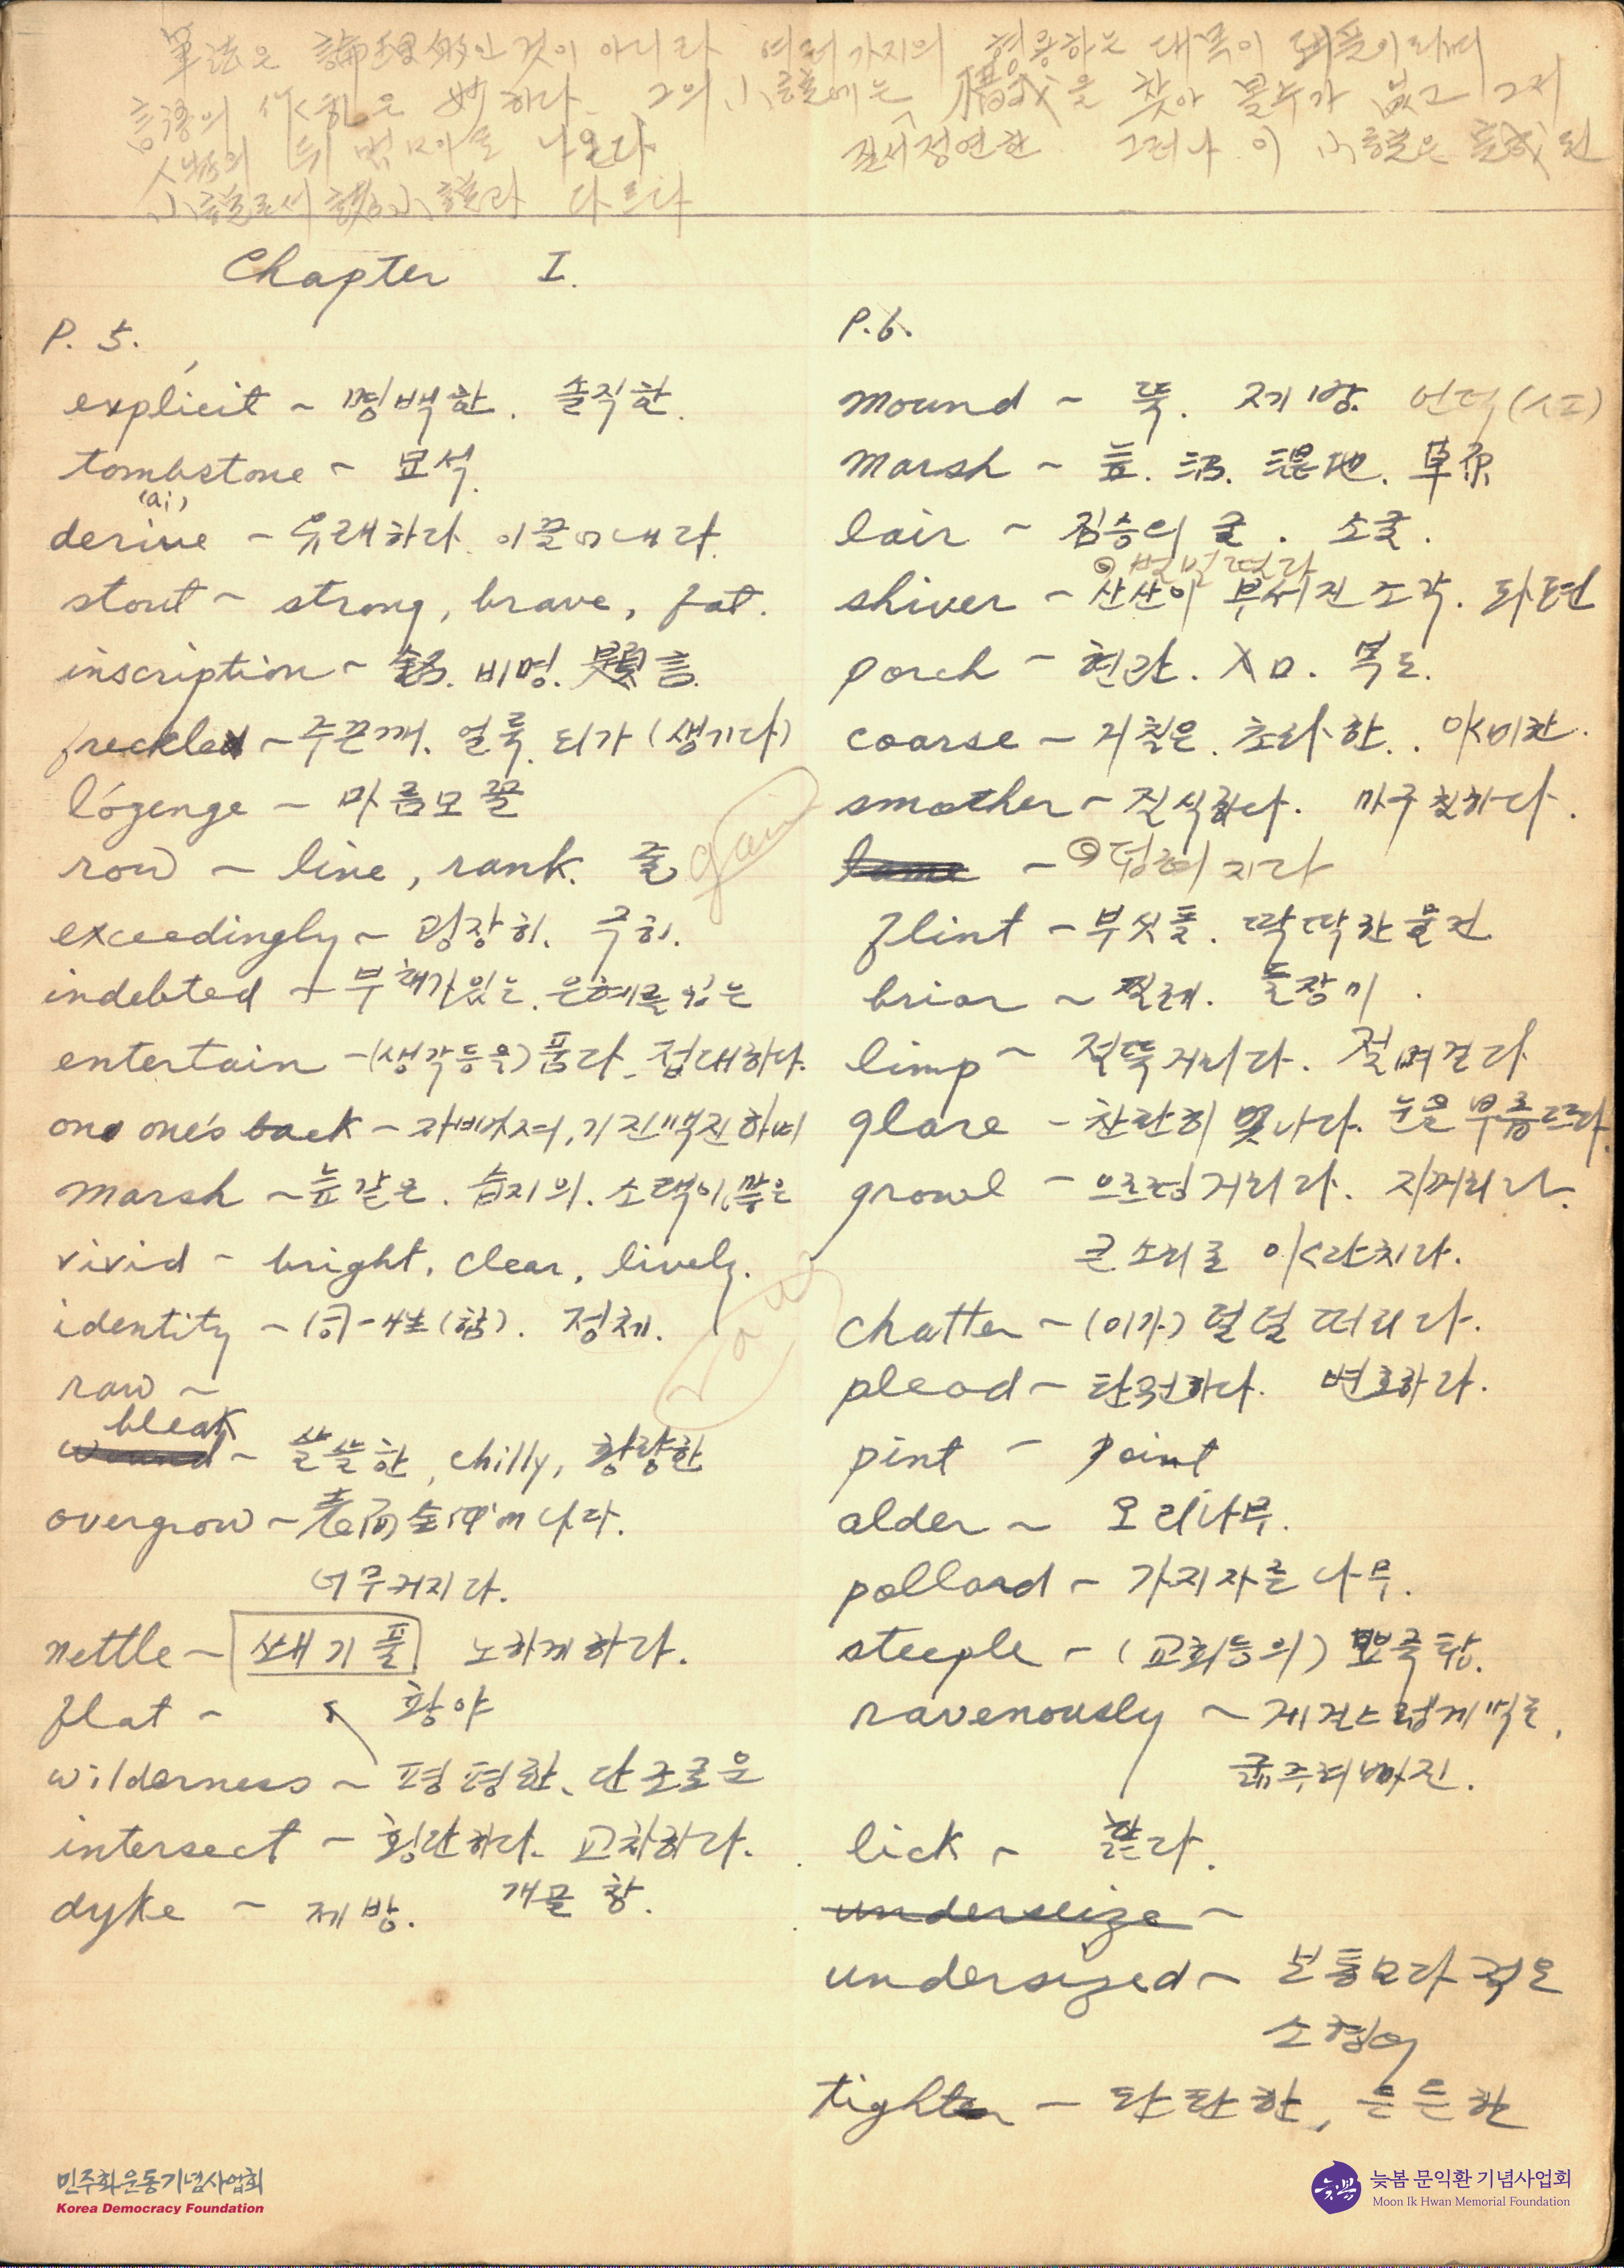 筆法은 論理的인 것이 아니라 여러가지의 형용하는 대목이
言語의 作亂은 妙하다. 그의 小說에는 을 찾아 볼수가 없고 그저
人物의 뒤 나온다. 질서정연한 그러나 이 小說은 完成된
小說로서 小說과 다르다
Chapter I.
P. 5.
explicit ~ 명백한. 솔직한.
tombstone ~ 묘석.
(ai)
derive ~ 유래하다. 이끌어내다.
stout ~ strong, brave, fat.
inscription ~ 銘. 비명. 題言.
freckle ~ 주근깨. 얼룩. 되가 (생기다)
lózenge ~ 마름모꼴
row ~ line, rank. 줄
exceedingly ~ 굉장히. 극히.
indebted ~ 부채가 있는. 은혜를 입은
entertain ~ (생각등을) 품다. 접대하다.
on one's back ~ 자빠져, 기진맥진하여
marsh ~ 늪같은. 습지의. 소택이 많은
vivid ~ bright, clear, lively.
identity ~ 同一性(함). 정체.
raw ~
bleak
~ 쓸쓸한, chilly, 황량한
overgrow ~ 表面全面에 나다.
너무커지다.
nettle ~ 쐐기풀 노하게하다.
flat ~ 황야
wilderness ~ 평평한, 단조로운
intersect ~ 횡단하다. 교차하다.
dyke ~ 제방. 개울창.
P. 6.
mound ~ 뚝. 제방. 언덕
marsh ~ 늪. 沼. 湿地. 草原
lair ~ 짐승의 굴. 소굴.
벌벌떨다
shiver ~ 산산이 부서진 조각. 파편
porch ~ 현관. 入口. 복도.
coarse ~ 거칠은. 초라한. 야비한.
smother ~ 질식하다. 마구 칠하다.
~ 덮혀지다
flint ~ 부싯돌. 딱딱한 물건
briar ~ 찔레. 들장미.
limp ~ 절뚝거리다. 절며걷다
glare ~ 찬란히 빛나다. 눈을 부릅뜨다.
growl ~ 으르렁거리다. 지꺼리다.
큰소리로 야단치다.
chatter ~ (이가) 덜덜 떠리다.
plead ~ 탄원하다. 변호하다.
pint ~ point
alder ~ 오리나무.
pollard ~ 가지자른 나무.
steeple ~ (교회등의) 뾰죽탑.
ravenously ~ 게걸스럽게 먹는,
굶주려빠진.
lick ~ 핥다.
underseize ~
undersized ~ 보통보다 적은
소형의
tight ~ 탄탄한, 든든한
민주화운동기념사업회
Korea Democracy Foundation
늦봄 문익환 기념사업회
Moon Ik Hwan Memorial Foundation